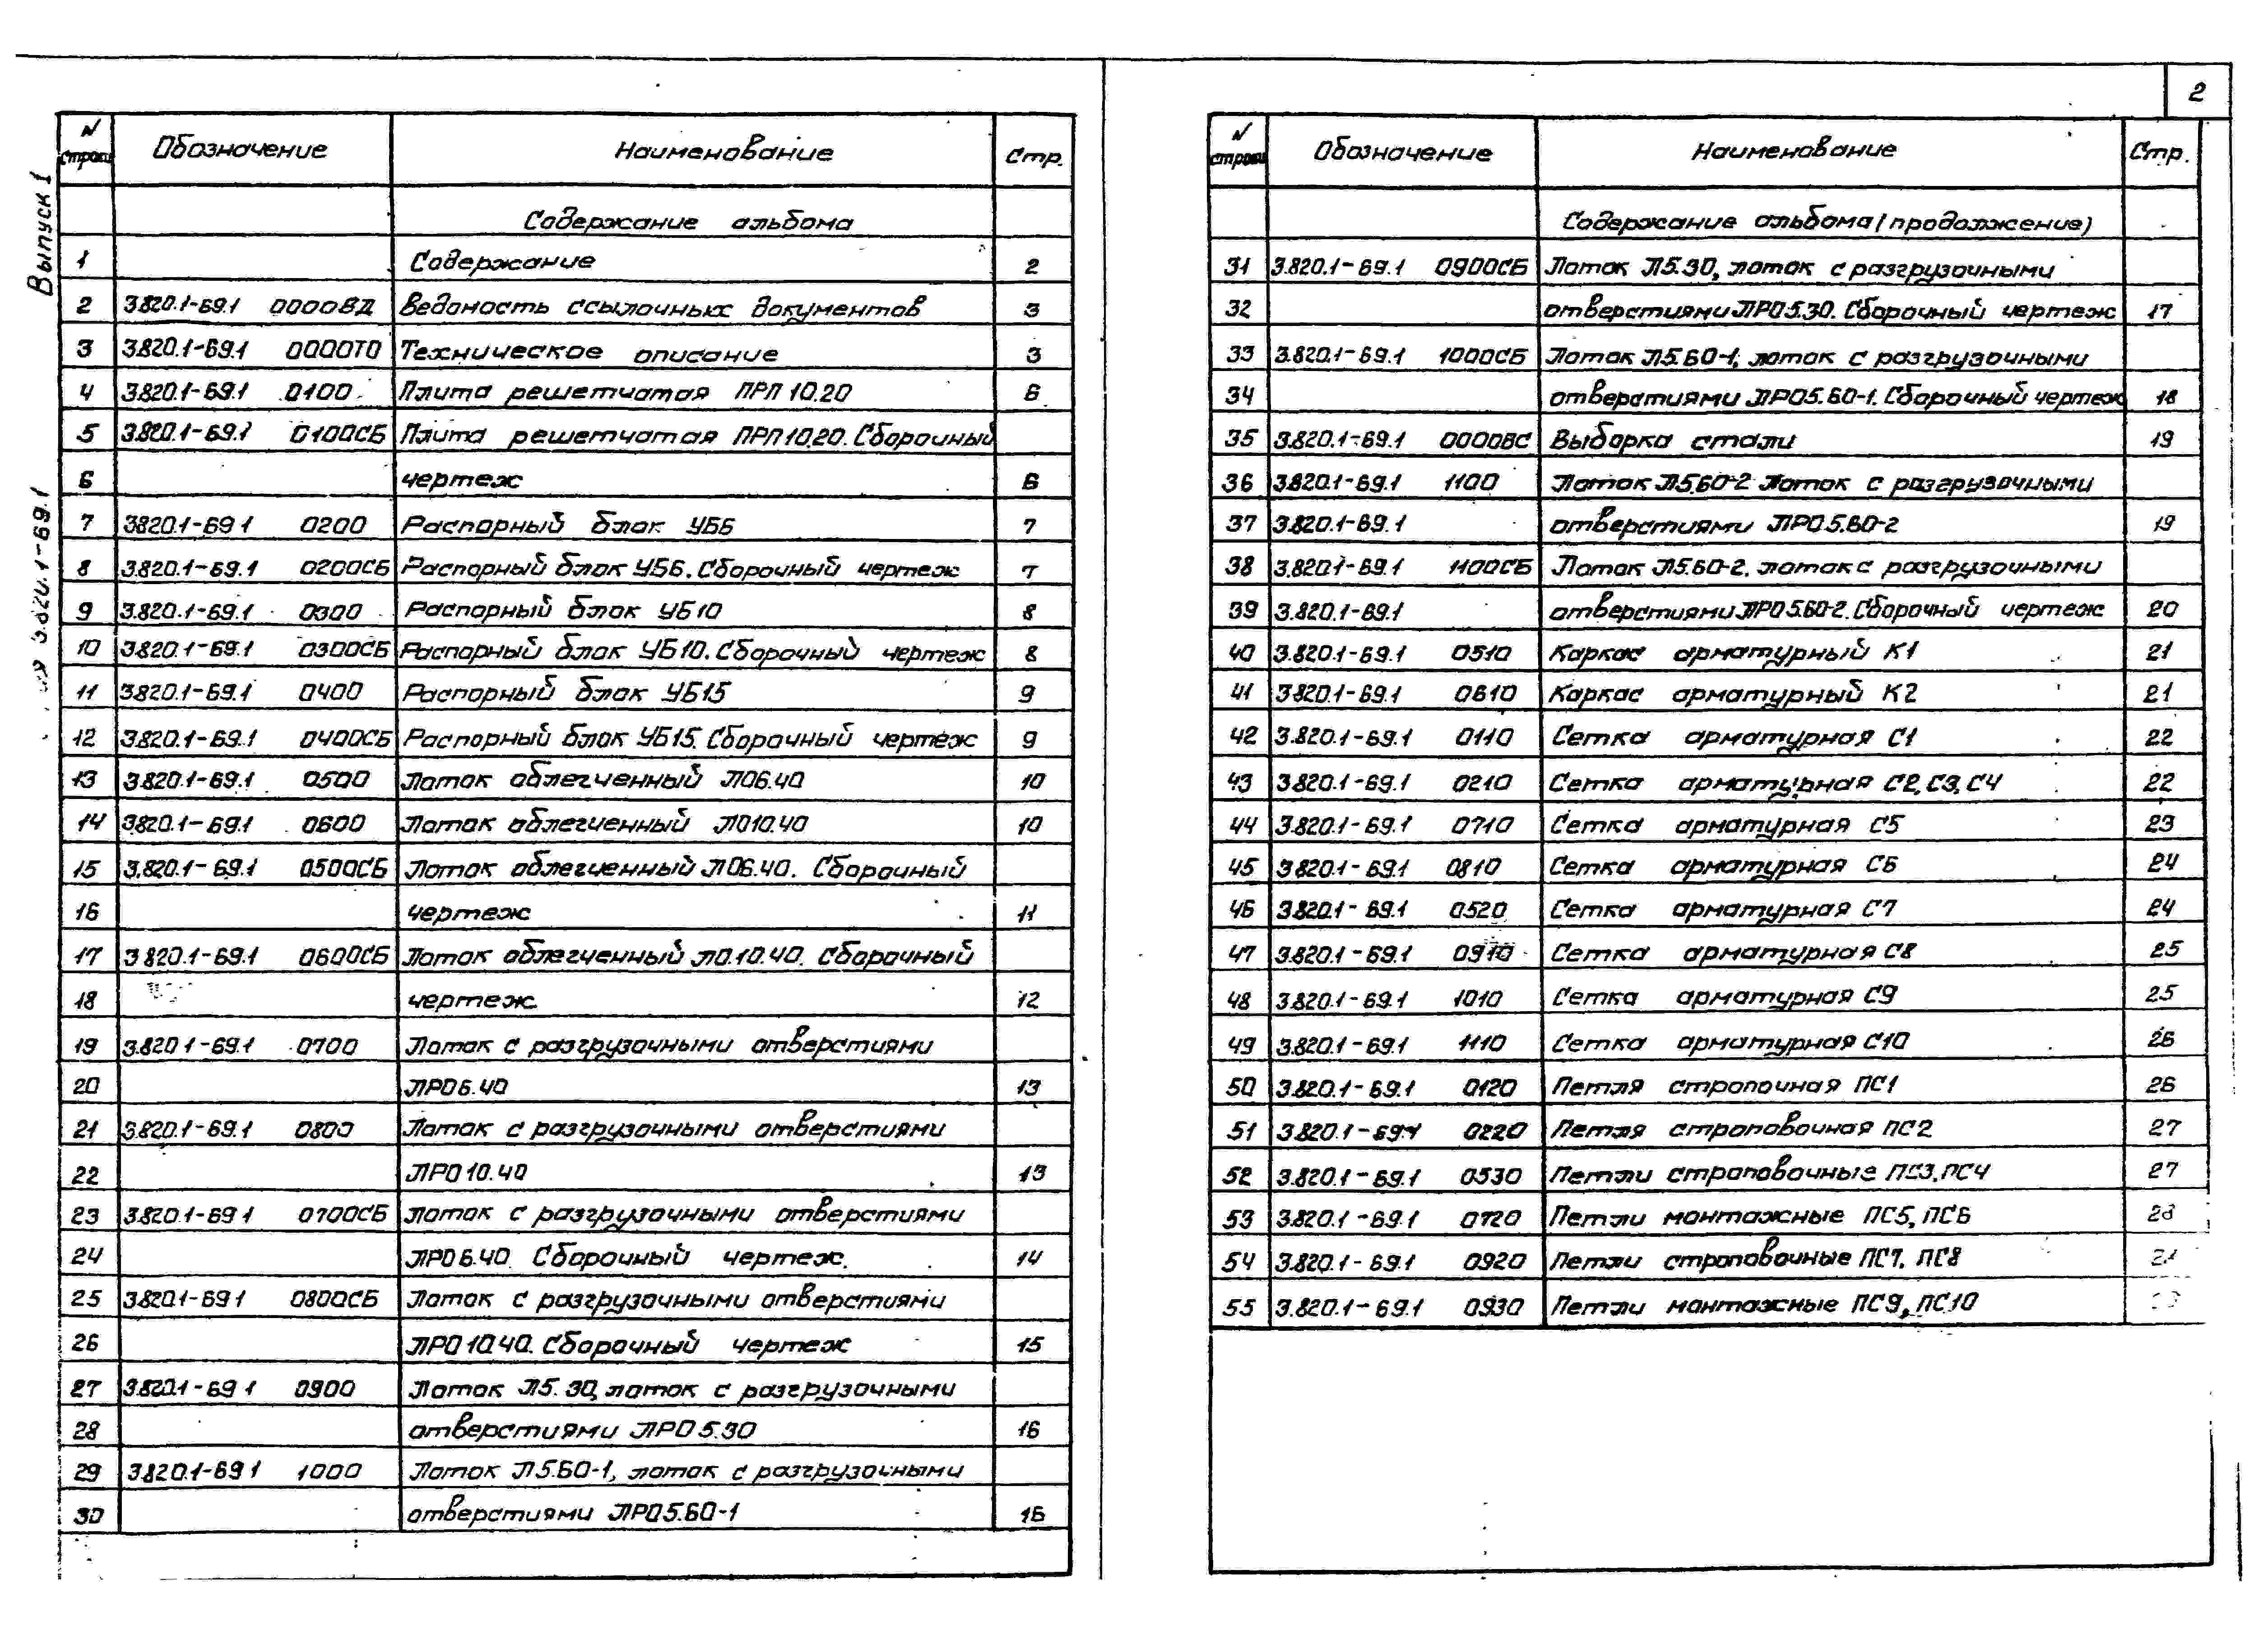 2
Выпуск 1
3.820.1-69.1
N строки Обозначение Наименование Стр.
Содержание альбома
1 Содержание 2
2 3.820.1-69.1 0000ВД Ведомость ссылочных документов 3
3 3.820.1-69.1 0000ТО Техническое описание 3
4 3.820.1-69.1 0100 Плита решетчатая ПРП 10.20 6
5 3.820.1-69.1 0100СБ Плита решетчатая ПРП 10.20. Сборочный
6 чертеж 6
7 3.820.1-69 1 0200 Распорный блок УБ6 7
8 3.820.1-69.1 0200СБ Распорный блок УБ6. Сборочный чертеж 7
9 3.820.1-69.1 0300 Распорный блок УБ10 8
10 3.820.1-69.1 0300СБ Распорный блок УБ10. Сборочный чертеж 8
11 3.820.1-69.1 0400 Распорный блок УБ15 9
12 3.820.1-69.1 0400СБ Распорный блок УБ15. Сборочный чертеж 9
13 3.820.1-69.1 0500 Лоток облегченный ЛО6.40 10
14 3.820.1-69.1 0600 Лоток облегченный ЛО10.40 10
15 3.820.1-69.1 0500СБ Лоток облегченный ЛО6.40. Сборочный
16 чертеж 11
17 3.820.1-69.1 0600СБ Лоток облегченный ЛО.10.40. Сборочный
18 чертеж 12
19 3.820 1-69.1 0700 Лоток с разгрузочными отверстиями
20 ЛРО6.40 13
21 3.820.1-69.1 0800 Лоток с разгрузочными отверстиями
22 ЛРО10.40 13
23 3.820.1-69 1 0700СБ Лоток с разгрузочными отверстиями
24 ЛРО6.40. Сборочный чертеж. 14
25 3.820.1-69 1 0800СБ Лоток с разгрузочными отверстиями
26 ЛРО10.40. Сборочный чертеж 15
27 3.820.1-69 1 0900 Лоток Л5.30, лоток с разгрузочными
28 отверстиями ЛРО5.30 16
29 3.820.1-69 1 1000 Лоток Л5.60-1, лоток с разгрузочными
30 отверстиями ЛРО5.60-1 16
N строки Обозначение Наименование Стр.
Содержание альбома (продолжение)
31 3.820.1-69.1 0900СБ Лоток Л5.30, лоток с разгрузочными
32 отверстиями ЛРО5.30. Сборочный чертеж 17
33 3.820.1-69.1 1000СБ Лоток Л5.60-1, лоток с разгрузочными
34 отверстиями ЛРО5.60-1. Сборочный чертеж 18
35 3.820.1-69.1 0000ВС Выборка стали 19
36 3.820.1-69.1 1100 Лоток Л5.60-2 Лоток с разгрузочными
37 3.820.1-69.1 отверстиями ЛРО5.60-2 19
38 3.820.1-69.1 1100СБ Лоток Л5.60-2, лоток с разгрузочными
39 3.820.1-69.1 отверстиями ЛРО5.60-2. Сборочный чертеж 20
40 3.820.1-69.1 0510 Каркас арматурный К1 21
41 3.820.1-69.1 0610 Каркас арматурный К2 21
42 3.820.1-69.1 0110 Сетка арматурная С1 22
43 3.820.1-69.1 0210 Сетка арматурная С2, С3, С4 22
44 3.820.1-69.1 0710 Сетка арматурная С5 23
45 3.820.1-69.1 0810 Сетка арматурная С6 24
46 3.820.1-69.1 0520 Сетка арматурная С7 24
47 3.820.1-69.1 0910 Сетка арматурная С8 25
48 3.820.1-69.1 1010 Сетка арматурная С9 25
49 3.820.1-69.1 1110 Сетка арматурная С10 26
50 3.820.1-69.1 0120 Петля строповочная ПС1 26
51 3.820.1-69.1 0220 Петля строповочная ПС2 27
52 3.820.1-69.1 0530 Петли строповочные ПС3, ПС4 27
53 3.820.1-69.1 0720 Петли монтажные ПС5, ПС6 28
54 3.820.1-69.1 0920 Петли строповочные ПС7, ПС8
55 3.820.1-69.1 0930 Петли монтажные ПС9, ПС10